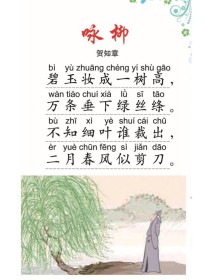 咏柳
贺知章
bì yù zhuāng chéng yí shù gāo
碧玉妆成一树高，
wàn tiáo chuí xià lǜ sī tāo
万条垂下绿丝绦。
bù zhī xì yè shuí cái chū
不知细叶谁裁出，
èr yuè chūn fēng sì jiǎn dāo
二月春风似剪刀。